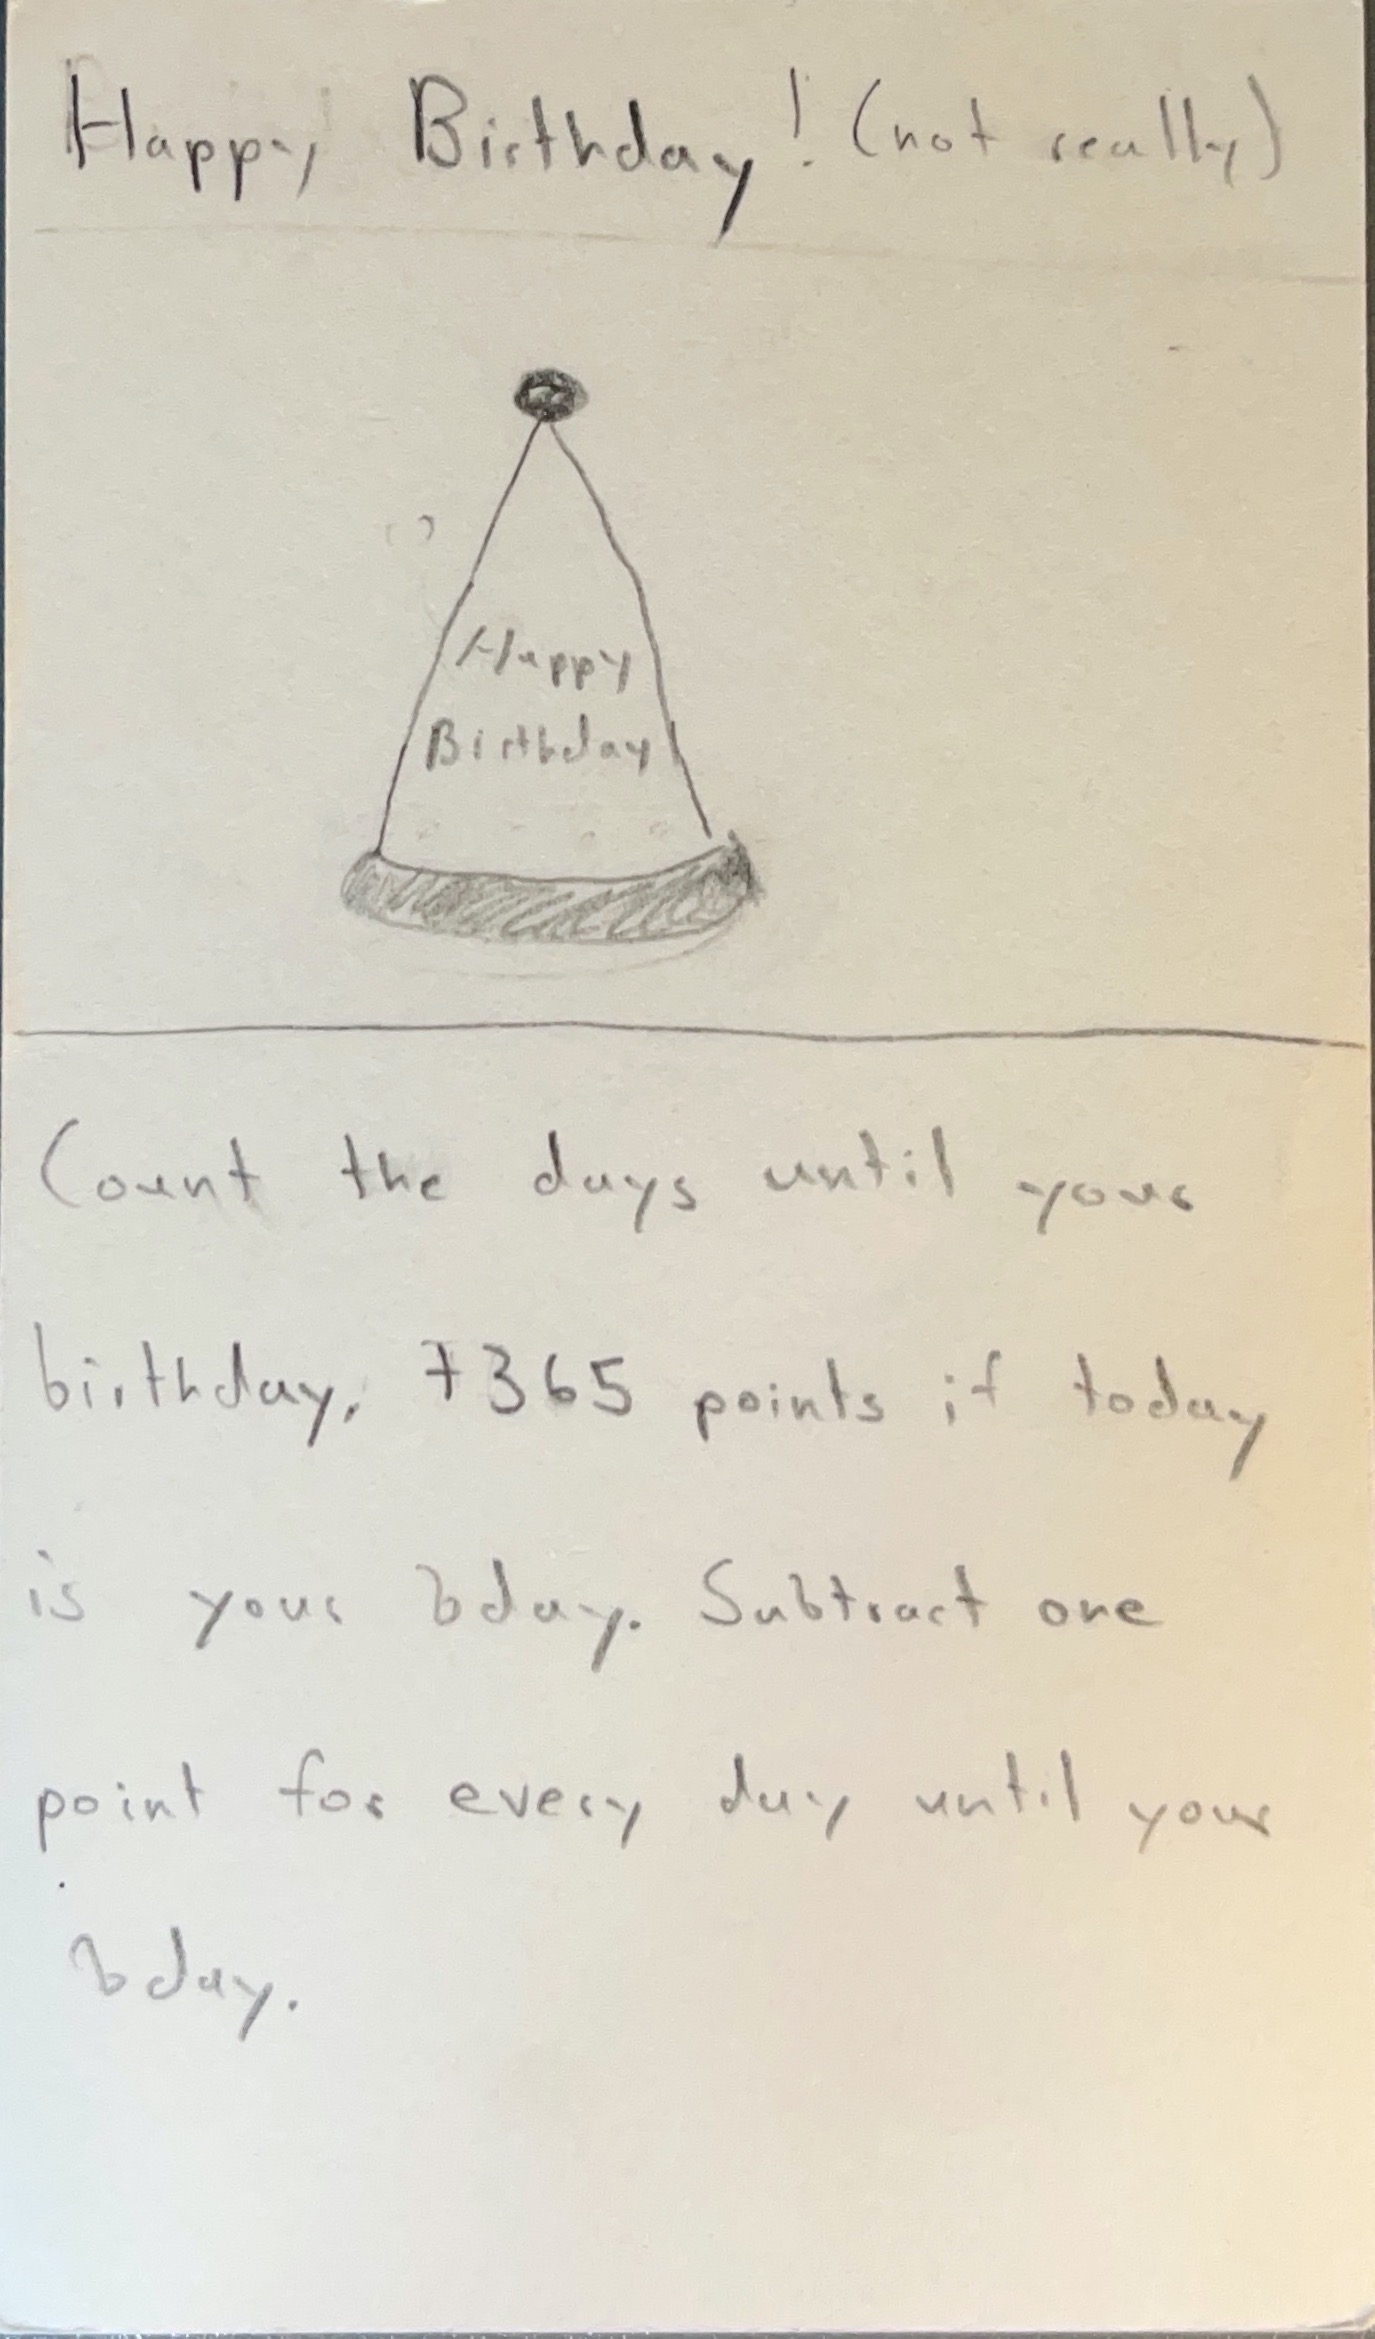 Happy Birthday! (not really)
Happy
Birthday
Count the days until your
birthday. +365 points if today
is your bday. Subtract one
point for every day until your
bday.